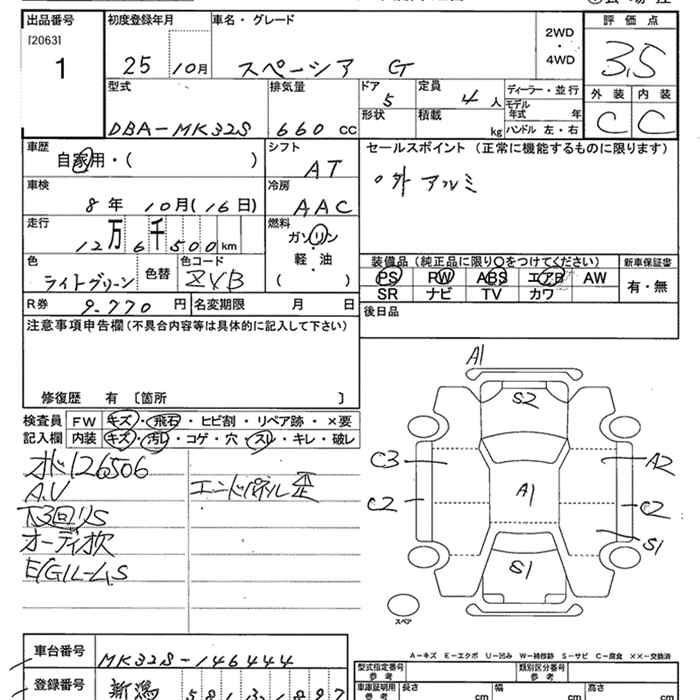 出品番号 初度登録年月 車名・グレード 2WD・4WD 評価点
[2063] 1 25 10月 スペーシア G 3.5
型式 排気量 ドア 5 定員 4 人 ディーラー・並行 外装 内装
DBA-MK32S 660 CC 形状 積載 kg モデル年式 年 ハンドル 左・右 C C
車歴 自家用・( ) シフト AT セールスポイント (正常に機能するものに限ります)
車検 8年 10月(16日) 冷房 AAC ○外アルミ
走行 12万6千500km 燃料 ガソリン 軽・油 ( )
色 ライトグリーン 色替 色コード ZVB
装備品 (純正品に限り○をつけてください) 新車保証書
PS PW ABS エアB AW 有・無
SR ナビ TV カワ
R券 9,770 円 名変期限 月 日 後日品
注意事項申告欄 (不具合内容等は具体的に記入して下さい)
修復歴 有 〔箇所 〕
検査員 FW キズ・飛石・ヒビ割・リペア跡・×要
記入欄 内装 キズ・汚レ・コゲ・穴・スレ・キレ・破レ
126506
A.V エンドパネル歪
下回りS
E/Gルーム S
A1
S2
C3 A2
A1
C2 C2
S1
S1
スペア
A-キズ E-エクボ U-凹み W-補修跡 S-サビ C-腐食 ××-交換済
車台番号 MK32S-146444 型式指定番号 参考 類別区分番号 参考
登録番号 新潟 581 車庫証明用 参考 長さ cm 幅 cm 高さ cm